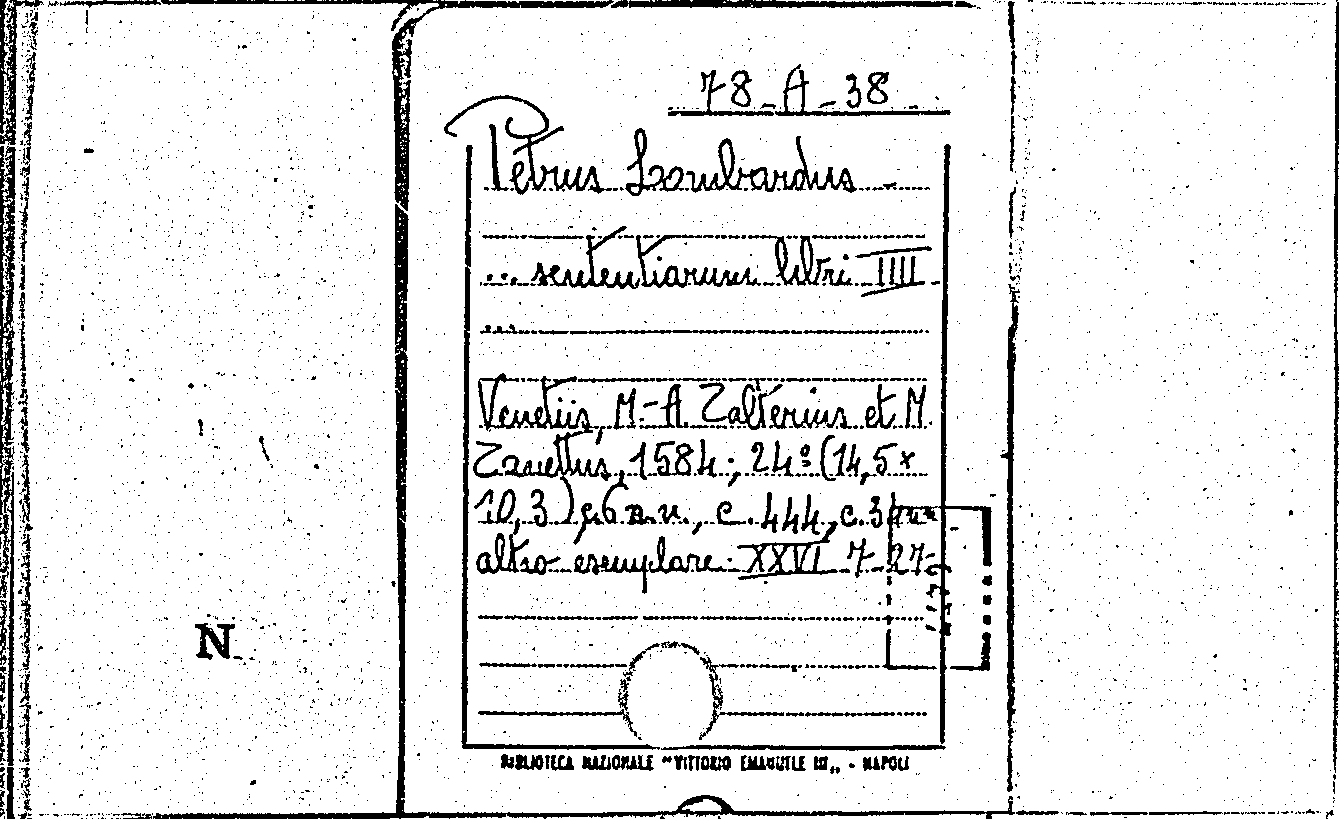 78-A-38
Petrus Lombardus -
... sententiarum libri IIII -
...
Venetiis, M.-A Zalterius et M
Zanettus, 1584; 24º (14,5 x
10,3) c. 6 n.n., c. 444, c. 3
altro esemplare. XXVI 7-27-
N
BIBLIOTECA NAZIONALE "VITTORIO EMANUELE III" - NAPOLI